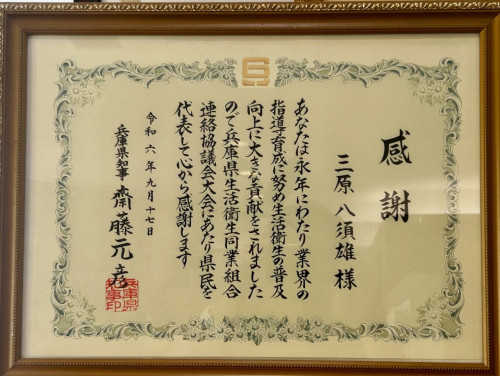 感謝
三原八須雄様
あなたは永年にわたり業界の
指導育成に努め生活衛生の普及
向上に大きな貢献をされました
ので兵庫県生活衛生同業組合
連絡協議会大会にあたり県民を
代表して心から感謝します
令和六年九月十七日
兵庫県知事 齋藤元彦
兵庫県
知事印